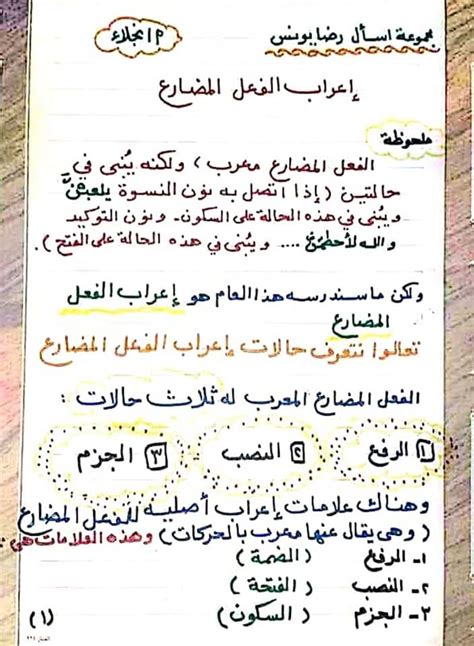 مجموعة اسأل رضا يونس
م / نجلاء
إعراب الفعل المضارع
ملحوظة
الفعل المضارع معرب، ولكنه يُبنى في
حالتين (إذا اتصل به نون النسوة يلعبْنَ
ويُبنى في هذه الحالة على السكون. ونون التوكيد
والله لأحطمنَّ .... ويُبنى في هذه الحالة على الفتح).
ولكن ما سندرسه هذا العام هو إعراب الفعل
المضارع
تعالوا نتعرف حالات إعراب الفعل المضارع
الفعل المضارع المعرب له ثلاث حالات :
١ الرفع ٢ النصب ٣ الجزم
وهناك علامات إعراب أصلية للفعل المضارع
(وهي يقال عنها معرب بالحركات) وهذه العلامات هي:
١- الرفع (الضمة)
٢- النصب (الفتحة)
٣- الجزم (السكون)
(١)